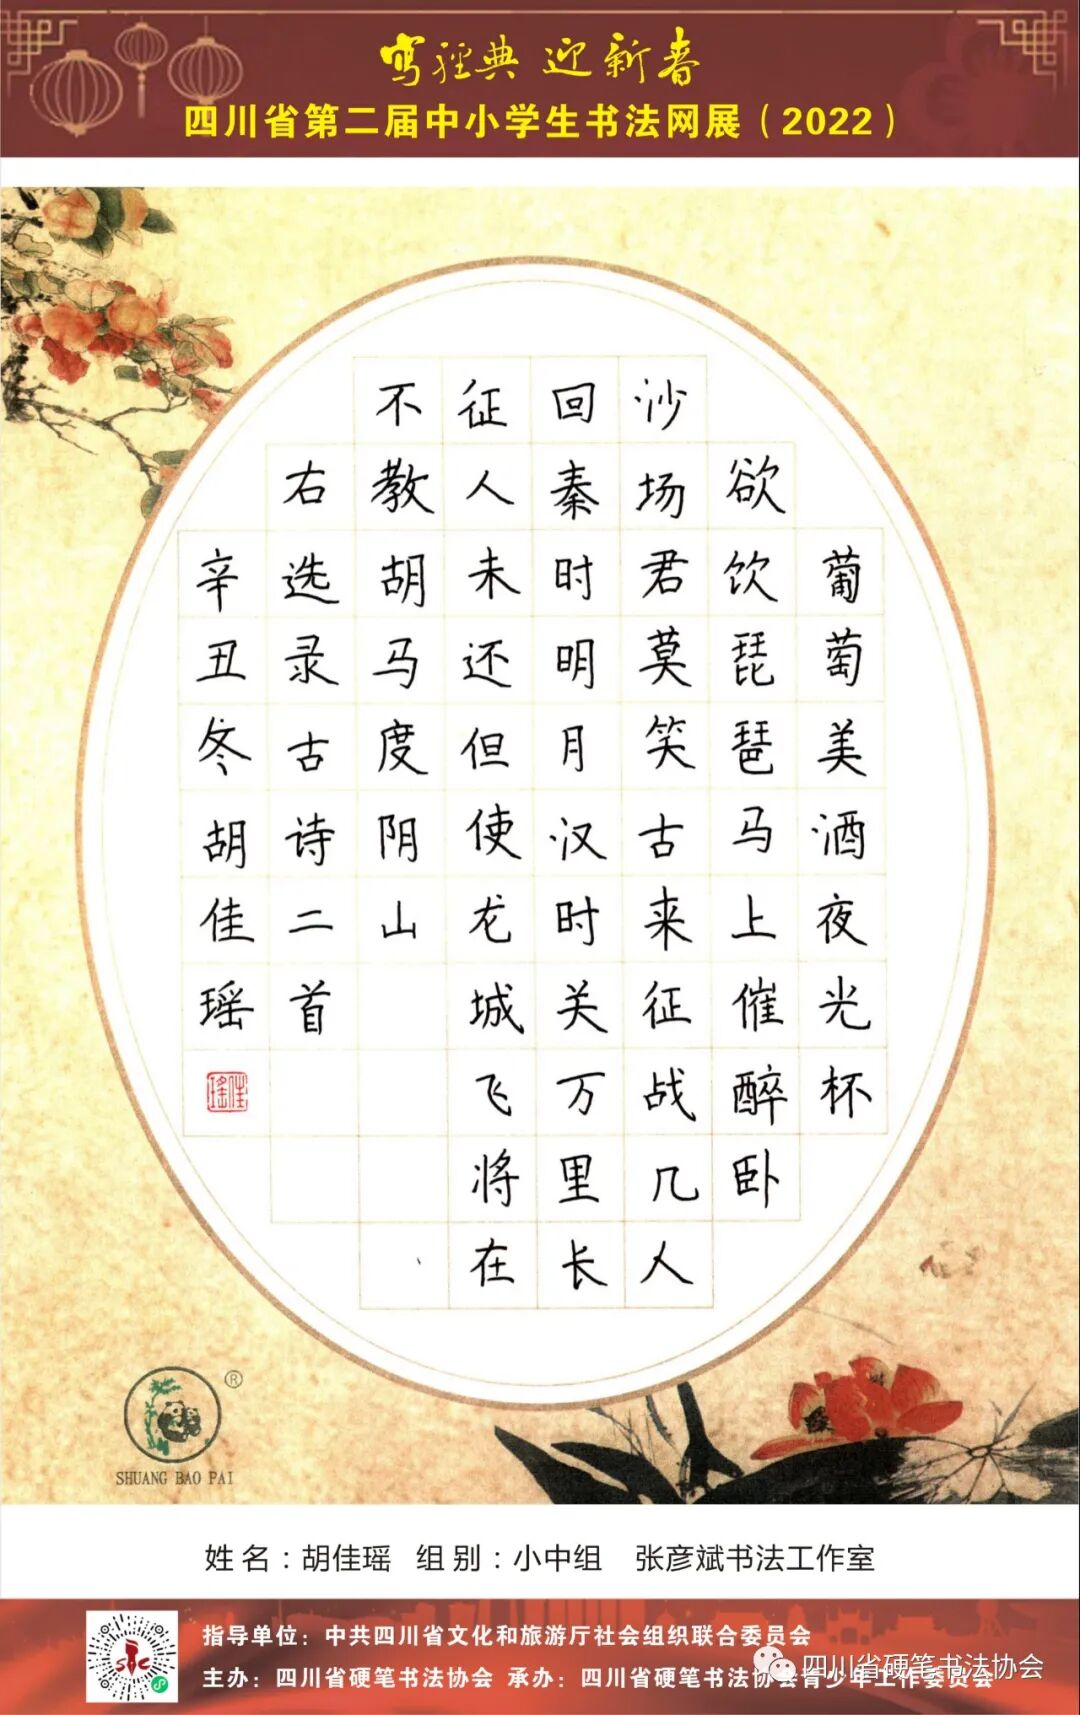 写经典 迎新春
四川省第二届中小学生书法网展（2022）
葡萄美酒夜光杯
欲饮琵琶马上催醉卧
沙场君莫笑古来征战几人
回秦时明月汉时关万里长
征人未还但使龙城飞将在
不教胡马度阴山
右选录古诗二首
辛丑冬胡佳瑶
佳瑶
®
SHUANG BAO PAI
姓名：胡佳瑶 组别：小中组 张彦斌书法工作室
指导单位：中共四川省文化和旅游厅社会组织联合委员会
主办：四川省硬笔书法协会 承办：四川省硬笔书法协会青少年工作委员会
四川省硬笔书法协会